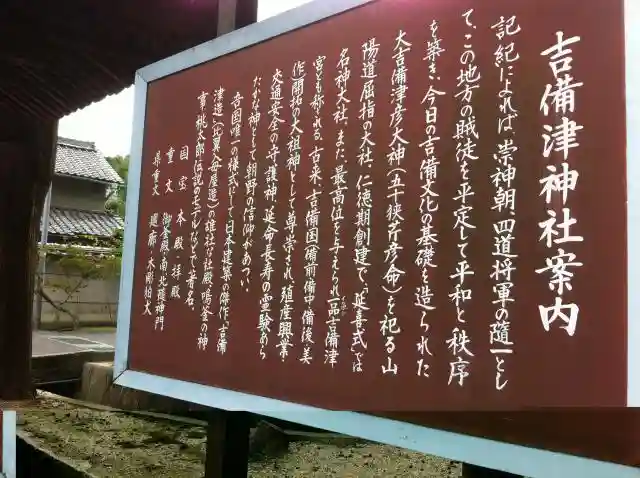 吉備津神社案内
記紀によれば、崇神朝、四道将軍の随一とし
て、この地方の賊徒を平定して平和と秩序
を築き、今日の吉備文化の基礎を造られた
大吉備津彦大神（五十狭芹彦命）を祀る山
陽道屈指の大社。仁徳期創建で、「延喜式」では
名神大社、また、最高位を与えられ一品吉備津
宮とも称れる。古来、吉備国（備前備中備後美
作）開拓の大祖神として尊崇され、殖産興業・
交通安全の守護神、延命長寿の霊験あら
たかな神として朝野の信仰があつい。
吉国唯一の様式にして日本建築の傑作「吉備
津造」（比翼入母屋造）の雄壮な社殿、鳴釜の神
事、桃太郎伝説のモデルなどで著名。
国宝 本殿・拝殿
重文 御釜殿・南北随神門
県重文 廻廊・木彫狛犬